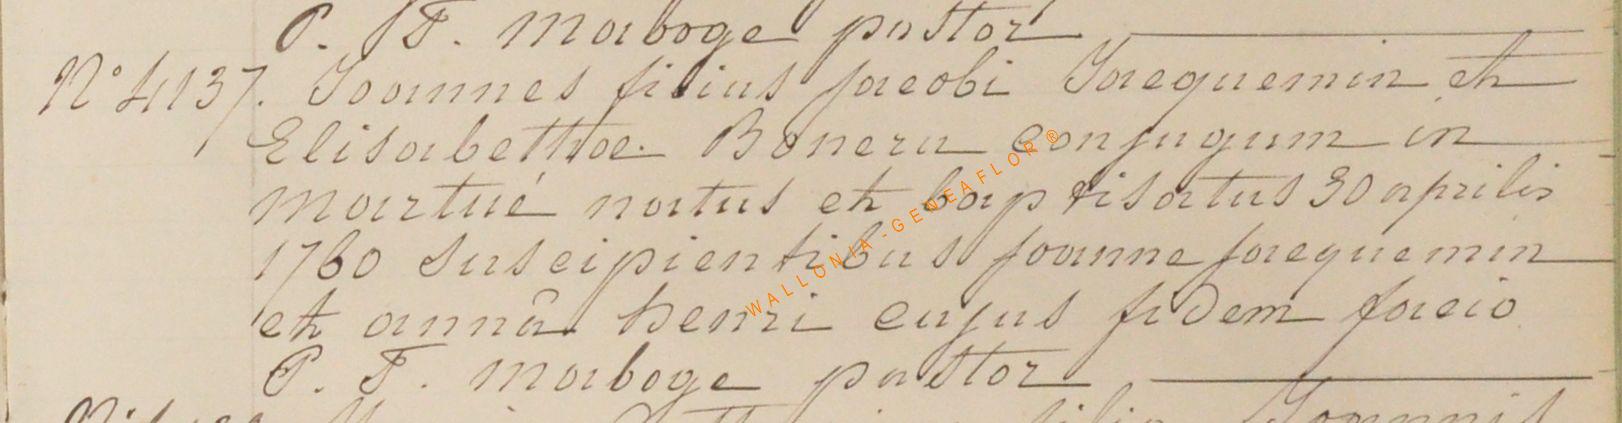 P. F. Maboge pastor
N° 4137. Joannes filius Jacobi Jacquemin et
Elisabethae Bonera conjugum in
martué natus et baptisatus 30 aprilis
1760 Suscipientibus Joanne Jacquemin
et annâ henri cujus fidem facio
P. F. Maboge pastor
WALLONIA-GENEAFLOR®